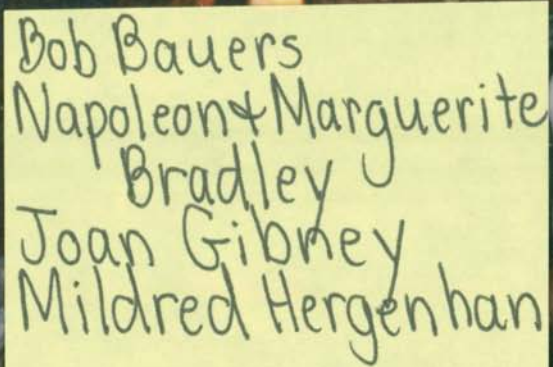 Bob Bauers
Napoleon & Marguerite
Bradley
Joan Gibney
Mildred Hergenhan